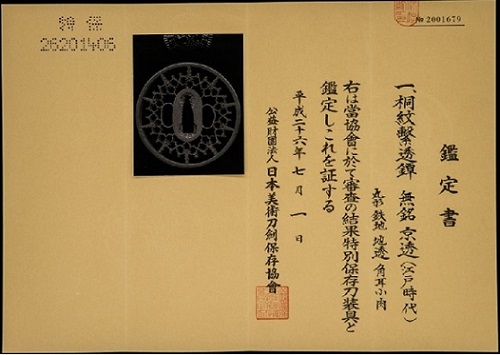 鑑定書
一、桐紋繫透鐔 無銘 京透(江戸時代)
丸形 鉄地 地透 角耳小肉
右は當協會に於て審査の結果特別保存刀装具と
鑑定しこれを証する
平成二十六年七月一日
公益財団法人 日本美術刀剣保存協會
№ 2001679
特保
26201406